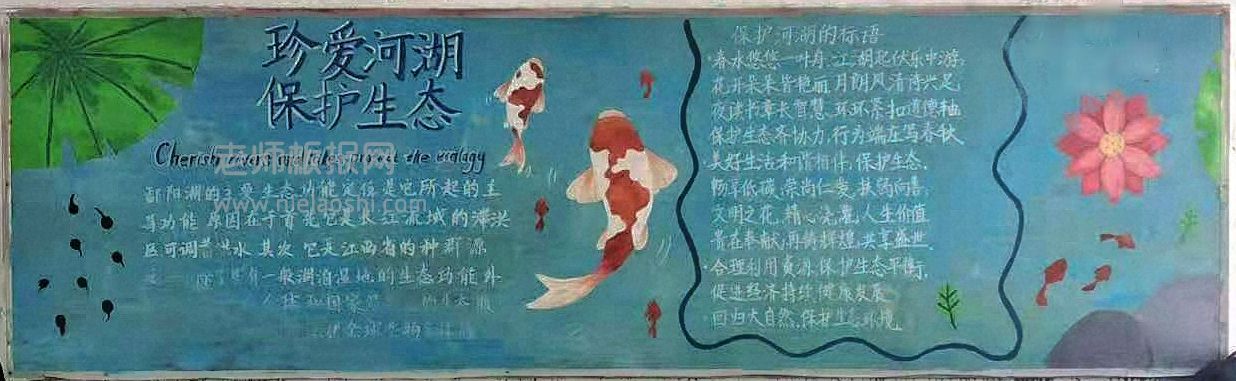 珍爱河湖
保护生态
Cherish rivers and lakes protect the ecology
老师板报网
www.ruelaoshi.com
鄱阳湖的主要生态功能定位是它所起的主
导功能 原因在于首先它是长江流域的滞洪
区可调蓄洪水 其次 它是江西省的种群源
有一般湖泊湿地的生态功能外
国家
全球
保护河湖的标语
·春水悠悠一叶舟,江湖起伏乐中游;
花开朵朵皆艳丽 月朗风清诗兴足
夜读书章长智慧 环环紧扣道德轴
保护生态齐协力,行为端正写春秋
美好生活和谐相伴,保护生态,
畅享低碳,崇尚仁爱,扶弱向善;
文明之花,精心浇灌,人生价值
贵在奉献,再铸辉煌,共享盛世.
·合理利用资源,保护生态平衡,
促进经济持续健康发展
·回归大自然,保护生态环境.